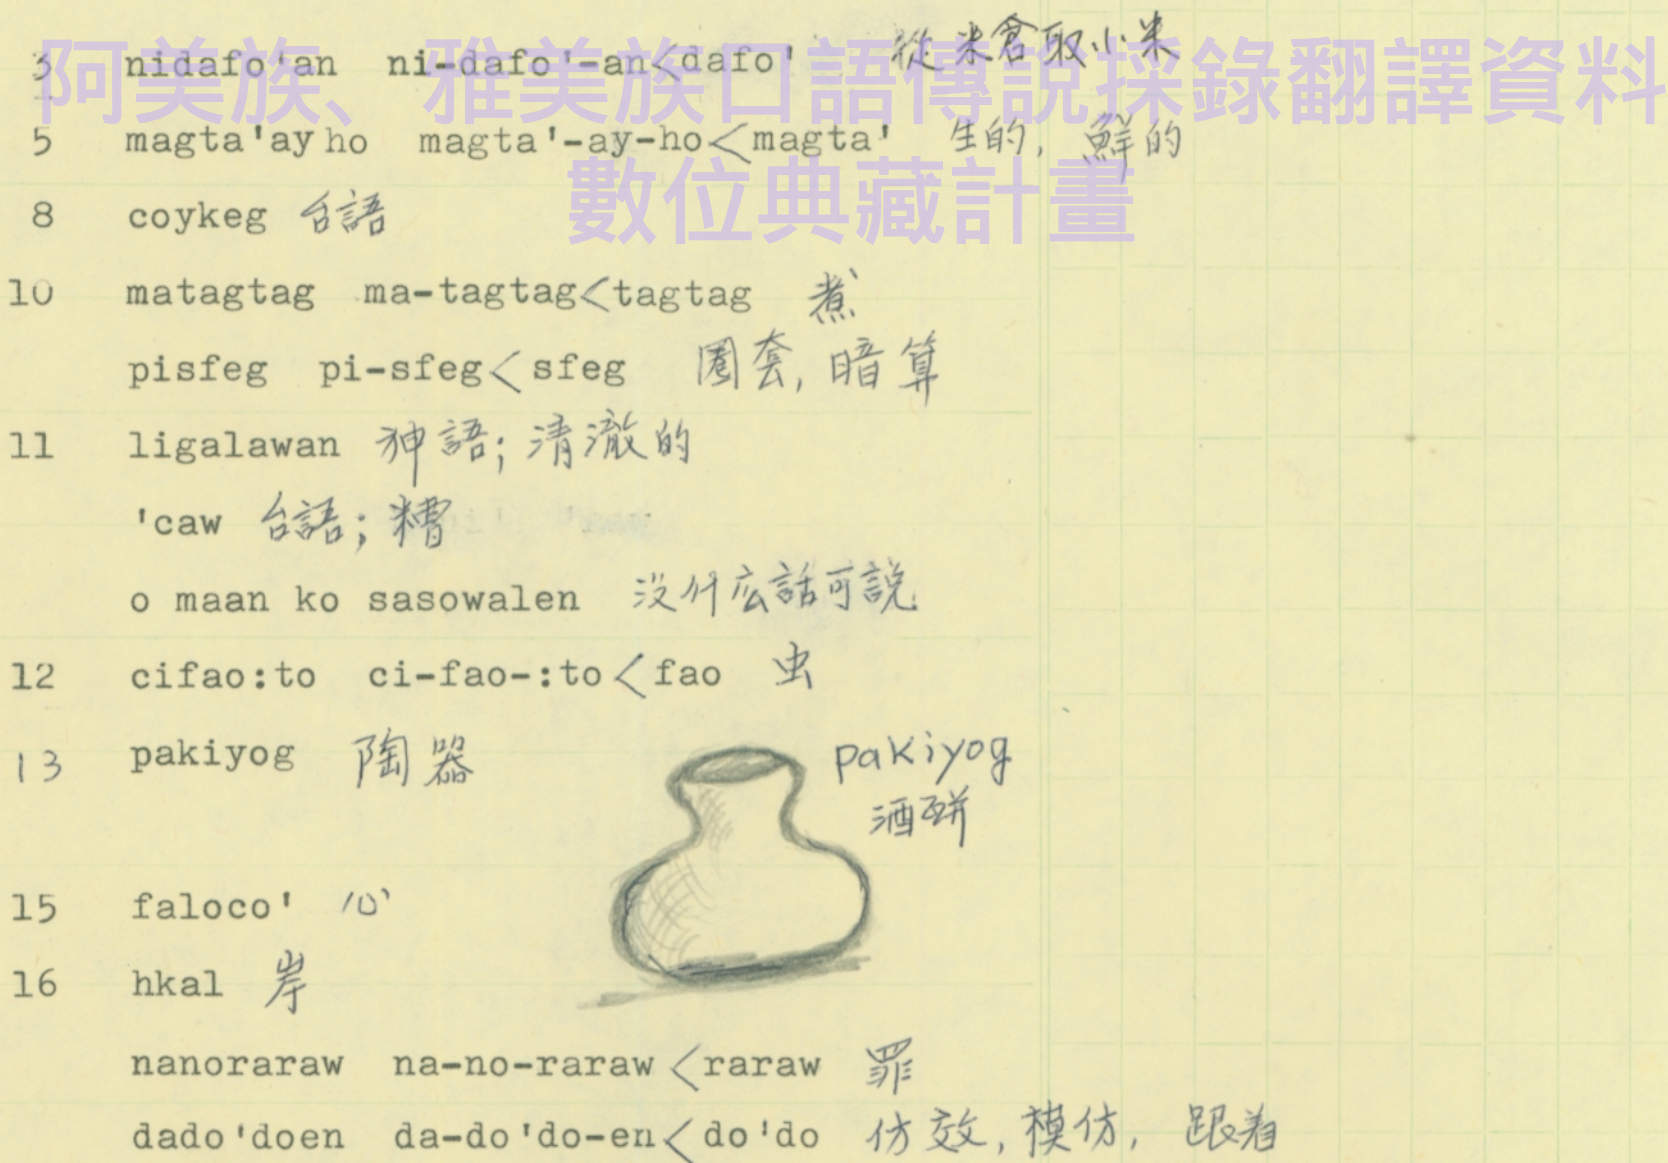 阿美族、雅美族口語傳說採錄翻譯資料
數位典藏計畫
3 nidafo'an ni-dafo'-an<dafo' 從米倉取小米
5 magta'ayho magta'-ay-ho<magta' 生的, 鮮的
8 coykeg 台語
10 matagtag ma-tagtag<tagtag 煮
pisfeg pi-sfeg<sfeg 圈套, 暗算
11 ligalawan 神語; 清澈的
'caw 台語; 糟
o maan ko sasowalen 没什広話可説
12 cifao:to ci-fao-:to<fao 虫
13 pakiyog 陶器
pakiyog
酒瓶
15 faloco' 心
16 hkal 岸
nanoraraw na-no-raraw<raraw 罪
dado'doen da-do'do-en<do'do 仿效, 模仿, 跟着